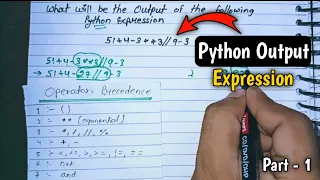 What will be the Output of the following
Python Expression
51+4-3**3//9-3
51+4-3**3//9-3
→ 51+4-27//9-3
Python Output
Expression
Operator Precedence
1 :- ()
2 :- ** (exponential)
3 :- *, /, //, %
4 :- + -
5 :- <, <=, >, >=, !=, ==
6 :- not
7 :- and
Part - 1